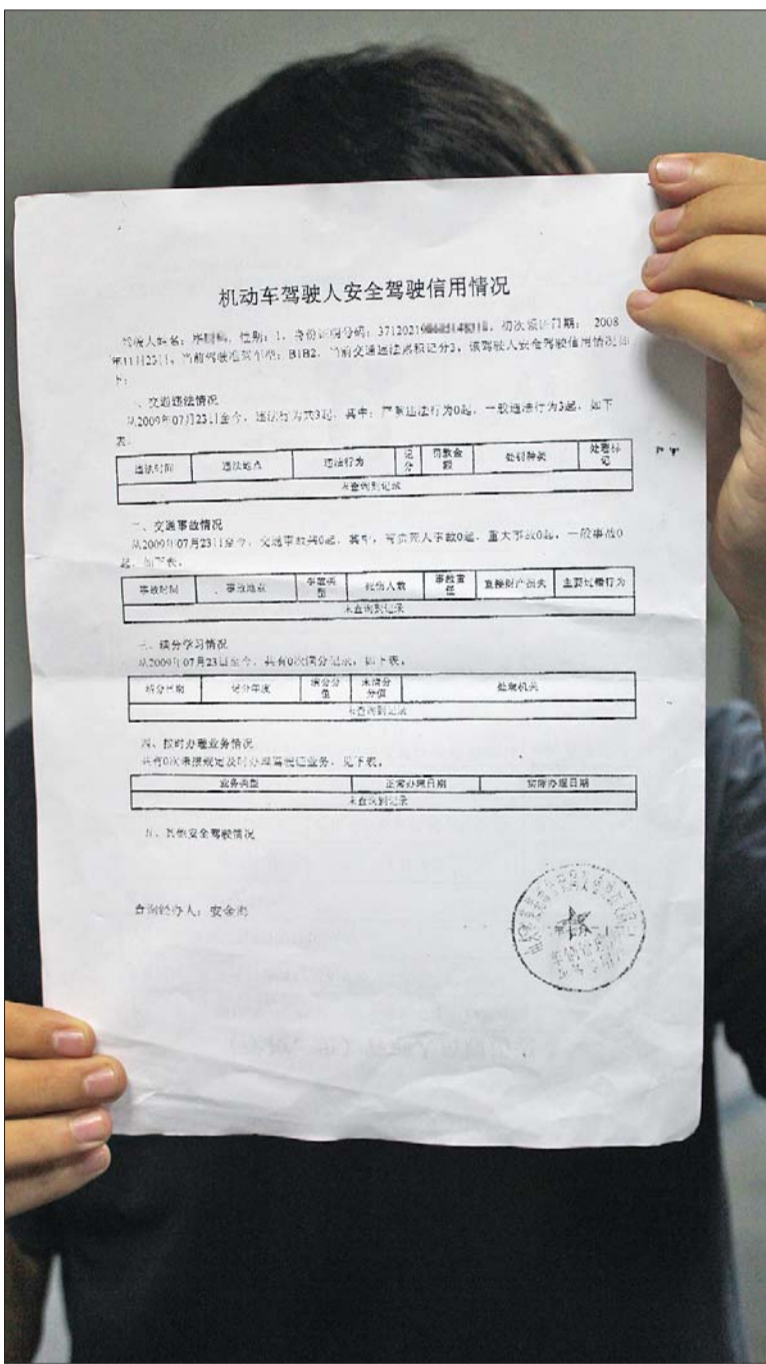 机动车驾驶人安全驾驶信用情况
驾驶人姓名: 性别:1, 身份证明号码:3712021 初次领证日期: 2008
年11月25日, 当前驾驶准驾车型:B1B2, 当前交通违法累积记分3, 该驾驶人安全驾驶信用情况如
下:
一、交通违法情况
从2009年07月23日至今, 违法行为共3起, 其中:严重违法行为0起, 一般违法行为3起, 如下
表。
违法时间 违法地点 违法行为 记分 罚款金额 处罚种类 处理标记
未查询到记录
二、交通事故情况
从2009年07月23日至今, 交通事故共0起, 其中, 负责死人事故0起, 重大事故0起, 一般事故0
起, 如下表。
事故时间 事故地点 事故类型 死伤人数 事故责任 直接财产损失 主要过错行为
未查询到记录
三、满分学习情况
从2009年07月23日至今, 共有0次满分记录, 如下表。
满分日期 记分年度 满分分值 未满分分值 处理机关
未查询到记录
四、按时办理业务情况
共有0次未按规定及时办理驾驶证业务, 见下表。
业务类型 正常办理日期 实际办理日期
未查询到记录
五、其他安全驾驶情况
查询经办人:安金